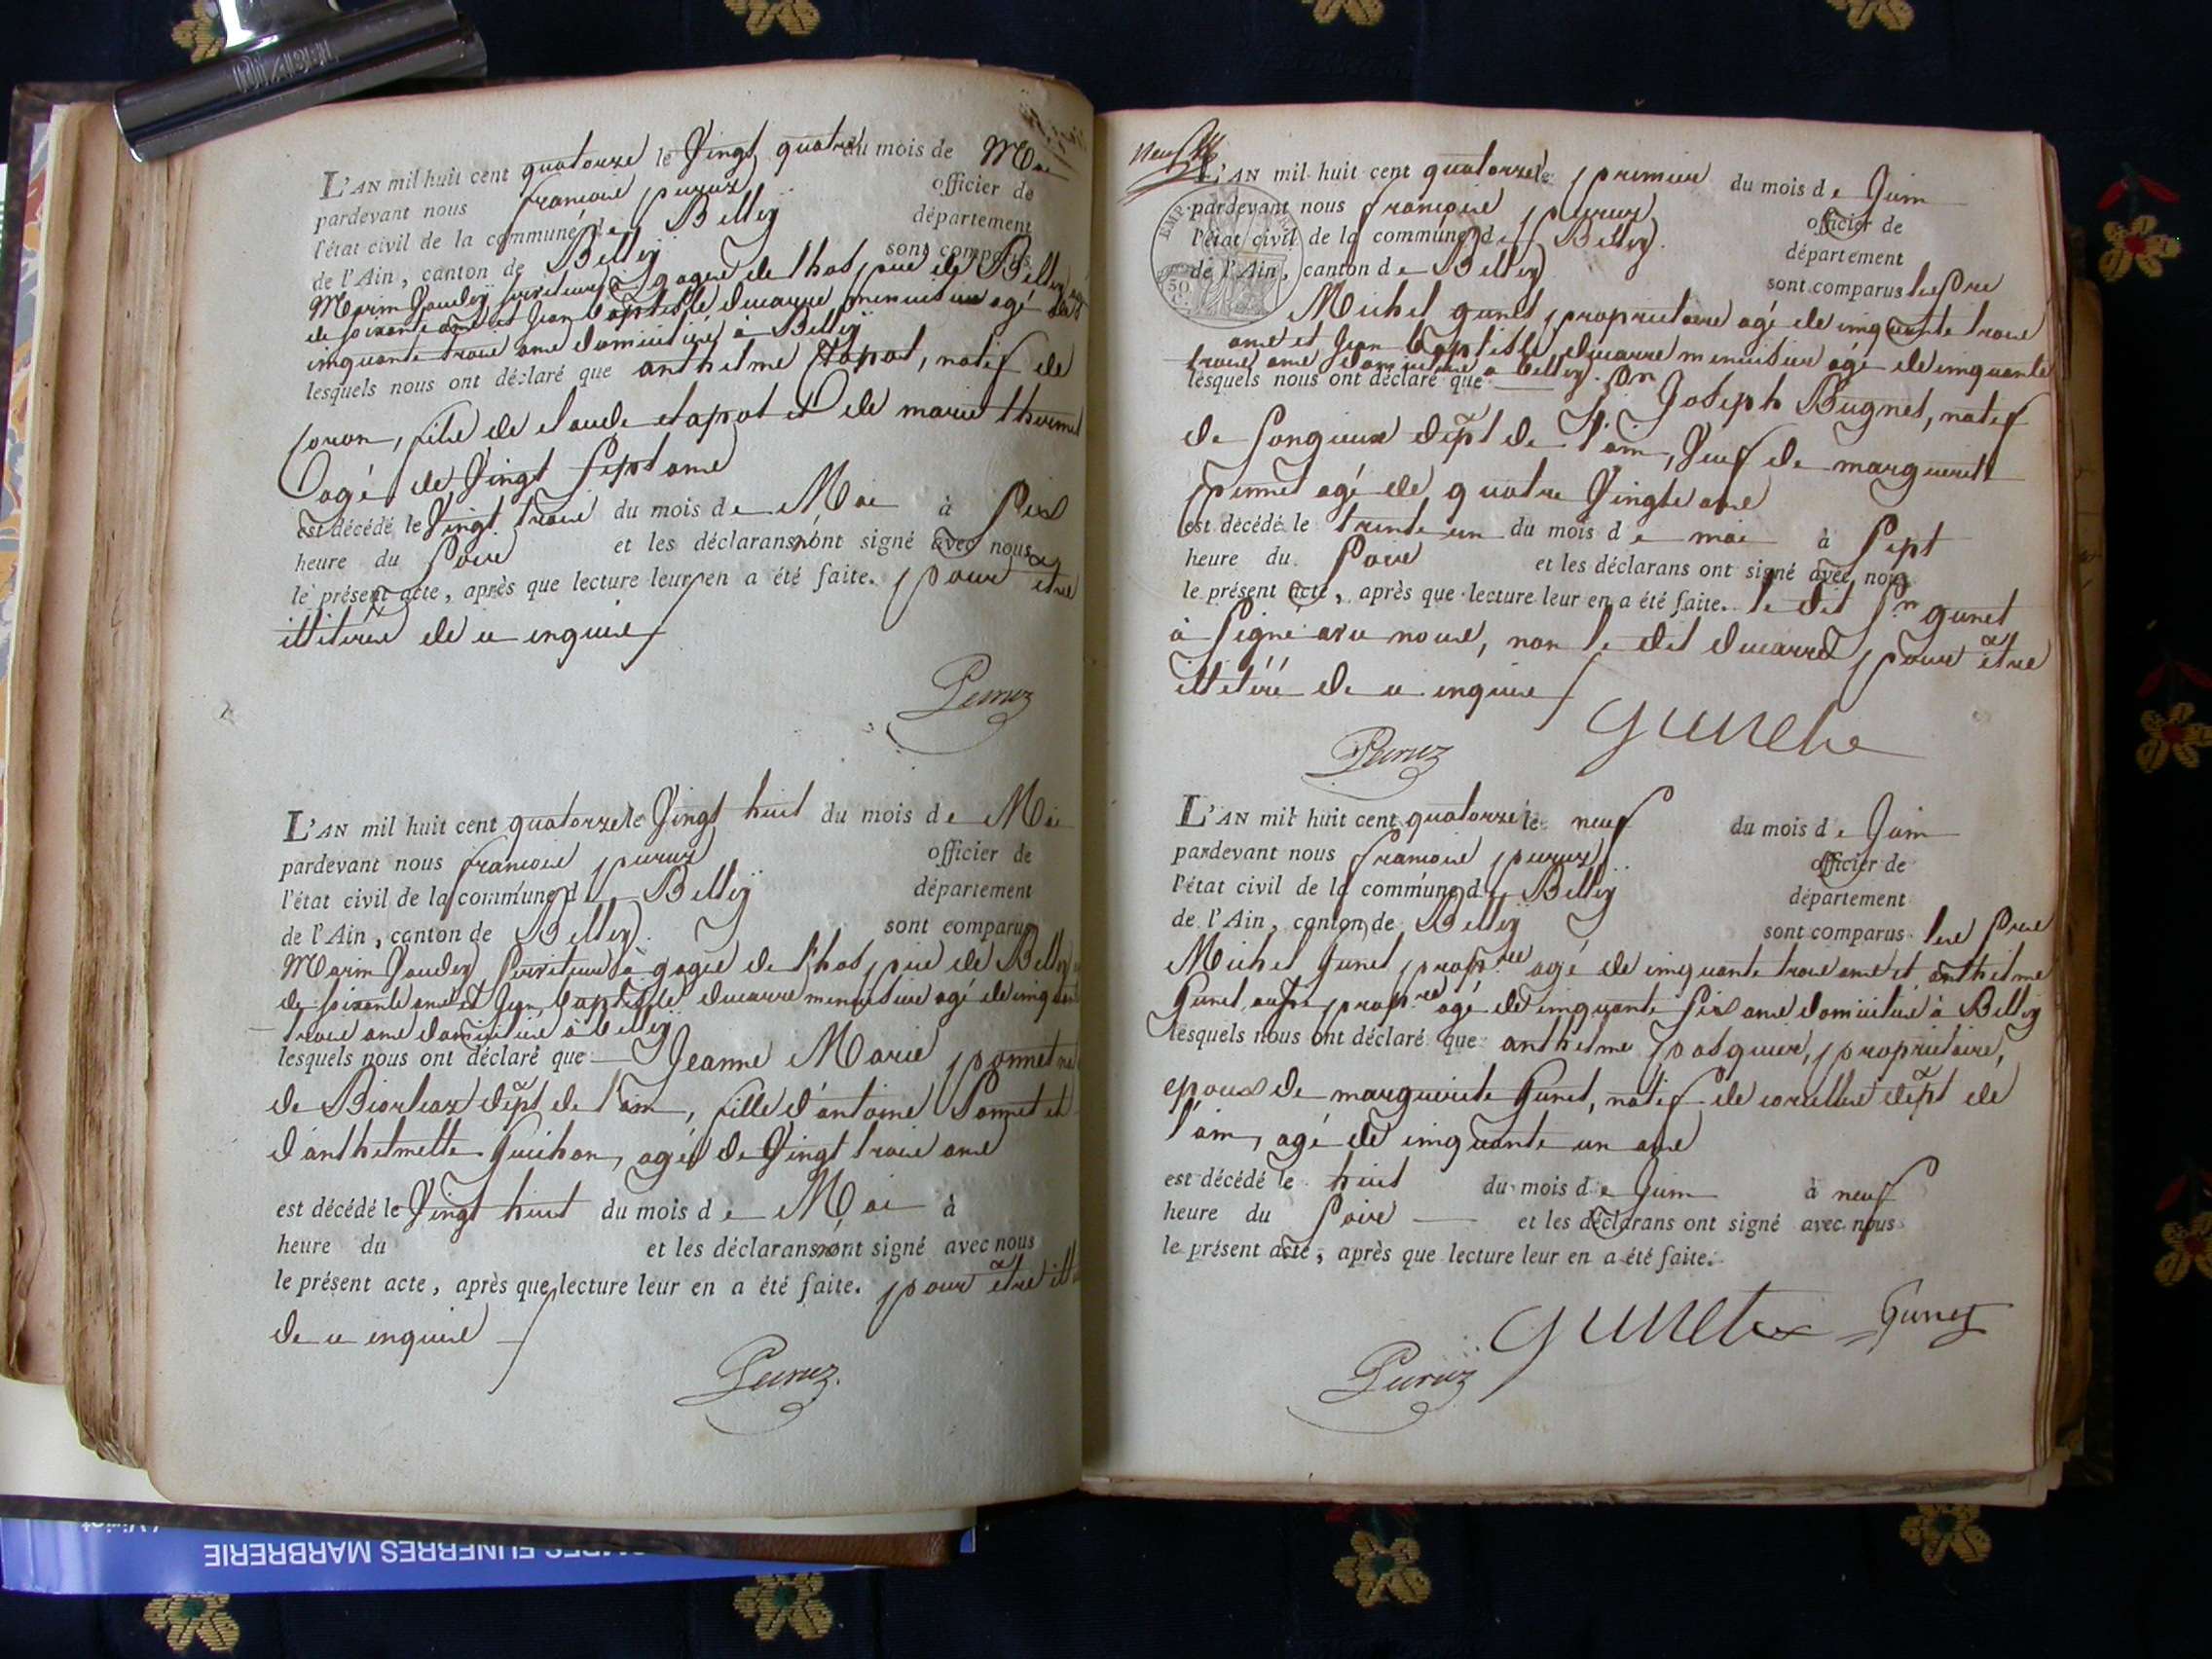 DIABEL
L'AN mil huit cent quatorze le Vingt quatre du mois de Mai
pardevant nous françois peruz officier de
l'état civil de la commune de Belley département
de l'Ain, canton de Belley sont comparus
Marin serviteur à gages de l'hospice de Belley
de soixante ans et Jean baptiste ducarre menuisier agé de
cinquante trois ans domiciliés à Belley
lesquels nous ont déclaré que anthelme Tapot, natif de
fils de claude et de marie
agé de Vingt Sept ans
est décédé le Vingt trois du mois de Mai à Six
heure du Soir et les déclarans n'ont signé avec nous
le présent acte, après que lecture leur en a été faite. pour être
illiterés de ce enquis
Peruz
L'AN mil huit cent quatorze le Vingt huit du mois de Mai
pardevant nous françois peruz officier de
l'état civil de la commune de Belley département
de l'Ain, canton de Belley sont comparus
Marin Serviteur à gages de l'hospice de Belley
de soixante ans et Jean baptiste ducarre menuisier agé de cinquante
trois ans domiciliés à belley
lesquels nous ont déclaré que Jeanne Marie ponnet
de dept de l'ain, fille d'antoine Ponnet et
d'anthelmette Guichon, agée de Vingt trois ans
est décédé le Vingt huit du mois de Mai à
heure du et les déclarans n'ont signé avec nous
le présent acte, après que lecture leur en a été faite. pour être
de ce enquis
Peruz.
neuf
L'AN mil huit cent quatorze le premier du mois de Juin
pardevant nous françois peruz officier de
l'état civil de la commune de Belley. département
de l'Ain, canton de Belley sont comparus les Srs
Michel gunet propriétaire agé de cinquante trois
ans et Jean baptiste ducarre menuisier agé de cinquante
trois ans domiciliés a belley.
lesquels nous ont déclaré que Sr Joseph Bugnet, natif
de Songieux dept de l'ain, Veuf de marguerite
agé de quatre Vingts ans
est décédé le trente un du mois de mai à Sept
heure du Soir et les déclarans ont signé avec nous
le présent acte, après que lecture leur en a été faite. le dit Sr gunet
à Signé avec nous, non le dit ducarre pour être
illitéré de ce enquis
Peruz gunet
L'AN mil huit cent quatorze le neuf du mois de Juin
pardevant nous françois peruz officier de
l'état civil de la commune de Belley département
de l'Ain, canton de Belley sont comparus les Srs
Michel Gunet propre agé de cinquante trois ans et anthelme
Gunet, autre propre agé de cinquante Six ans domiciliés à Belley
lesquels nous ont déclaré que anthelme pasquier, propriétaire,
epoux de marguerite Gunet, natif de dept de
l'ain, agé de cinquante un ans
est décédé le huit du mois de Juin à neuf
heure du Soir et les déclarans ont signé avec nous
le présent acte, après que lecture leur en a été faite.
Peruz gunet Gunet
FUNEBRES MARBRERIE